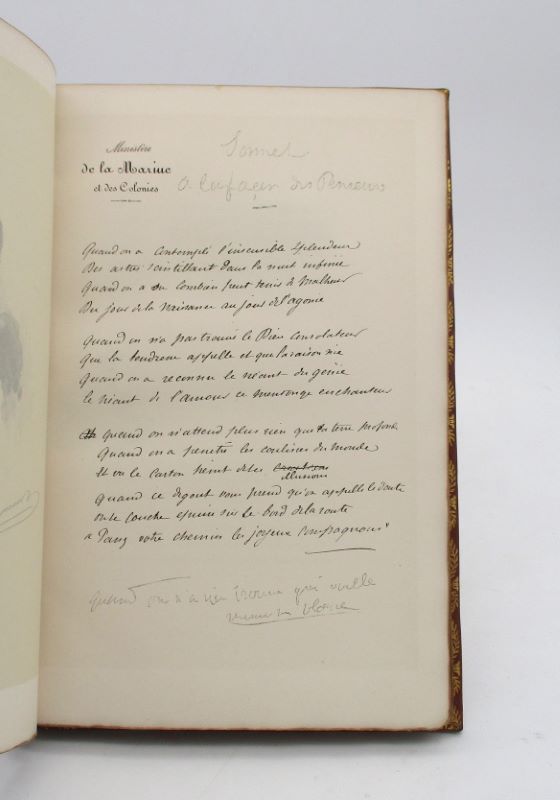 Ministère
de la Marine
et des Colonies
Sonnet
à la façon des Penseurs
Quand on a contemplé l'insensible splendeur
Des astres scintillant dans la nuit infinie
Quand on a su combien peut tenir de malheur
Du jour de la naissance au jour de l'agonie
Quand on n'a pas trouvé le Dieu consolateur
Que la tendresse appelle et que la raison nie
Quand on a reconnu le néant du génie
le néant de l'amour ce mensonge enchanteur
Quand on n'attend plus rien que la terre profonde
Quand on a pénétré les coulisses du monde
Et vu le carton peint de les
illusions
Quand ce dégout vous prend qu'on appelle le doute
on se couche épuisé sur le bord de la route
Passez votre chemin les joyeux compagnons
Quand on n'a rien trouvé qui vaille